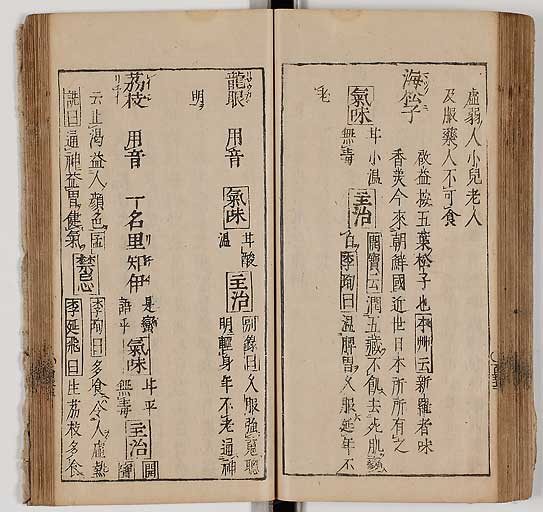 虚弱人小兒老人
及服藥人不可食
海松子
敬益按五葉松子也本艸云新羅者味
香美今來朝鮮國近世日本所所有之
氣味 甘小温 無毒 主治 開寶云潤五臓不飢去死肌變
白李珣曰温腸胃久服延年不
老
龍眼 用音 氣味 甘酸 温 主治 別録曰久服強䰟聰
明輕身年不老通神
明
茘枝 用音 一名里知伊 是蠻語乎 氣味 甘平 無毒 主治 開寶
云止渇益人顔色 詵曰通神益智健氣 禁忌 李珣曰多食令人虚熱
李延飛曰生茘枝多食